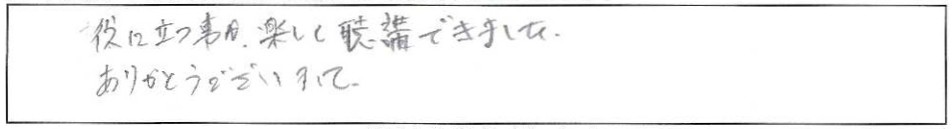 役に立つ事柄、楽しく聴講できました。
ありがとうございました。